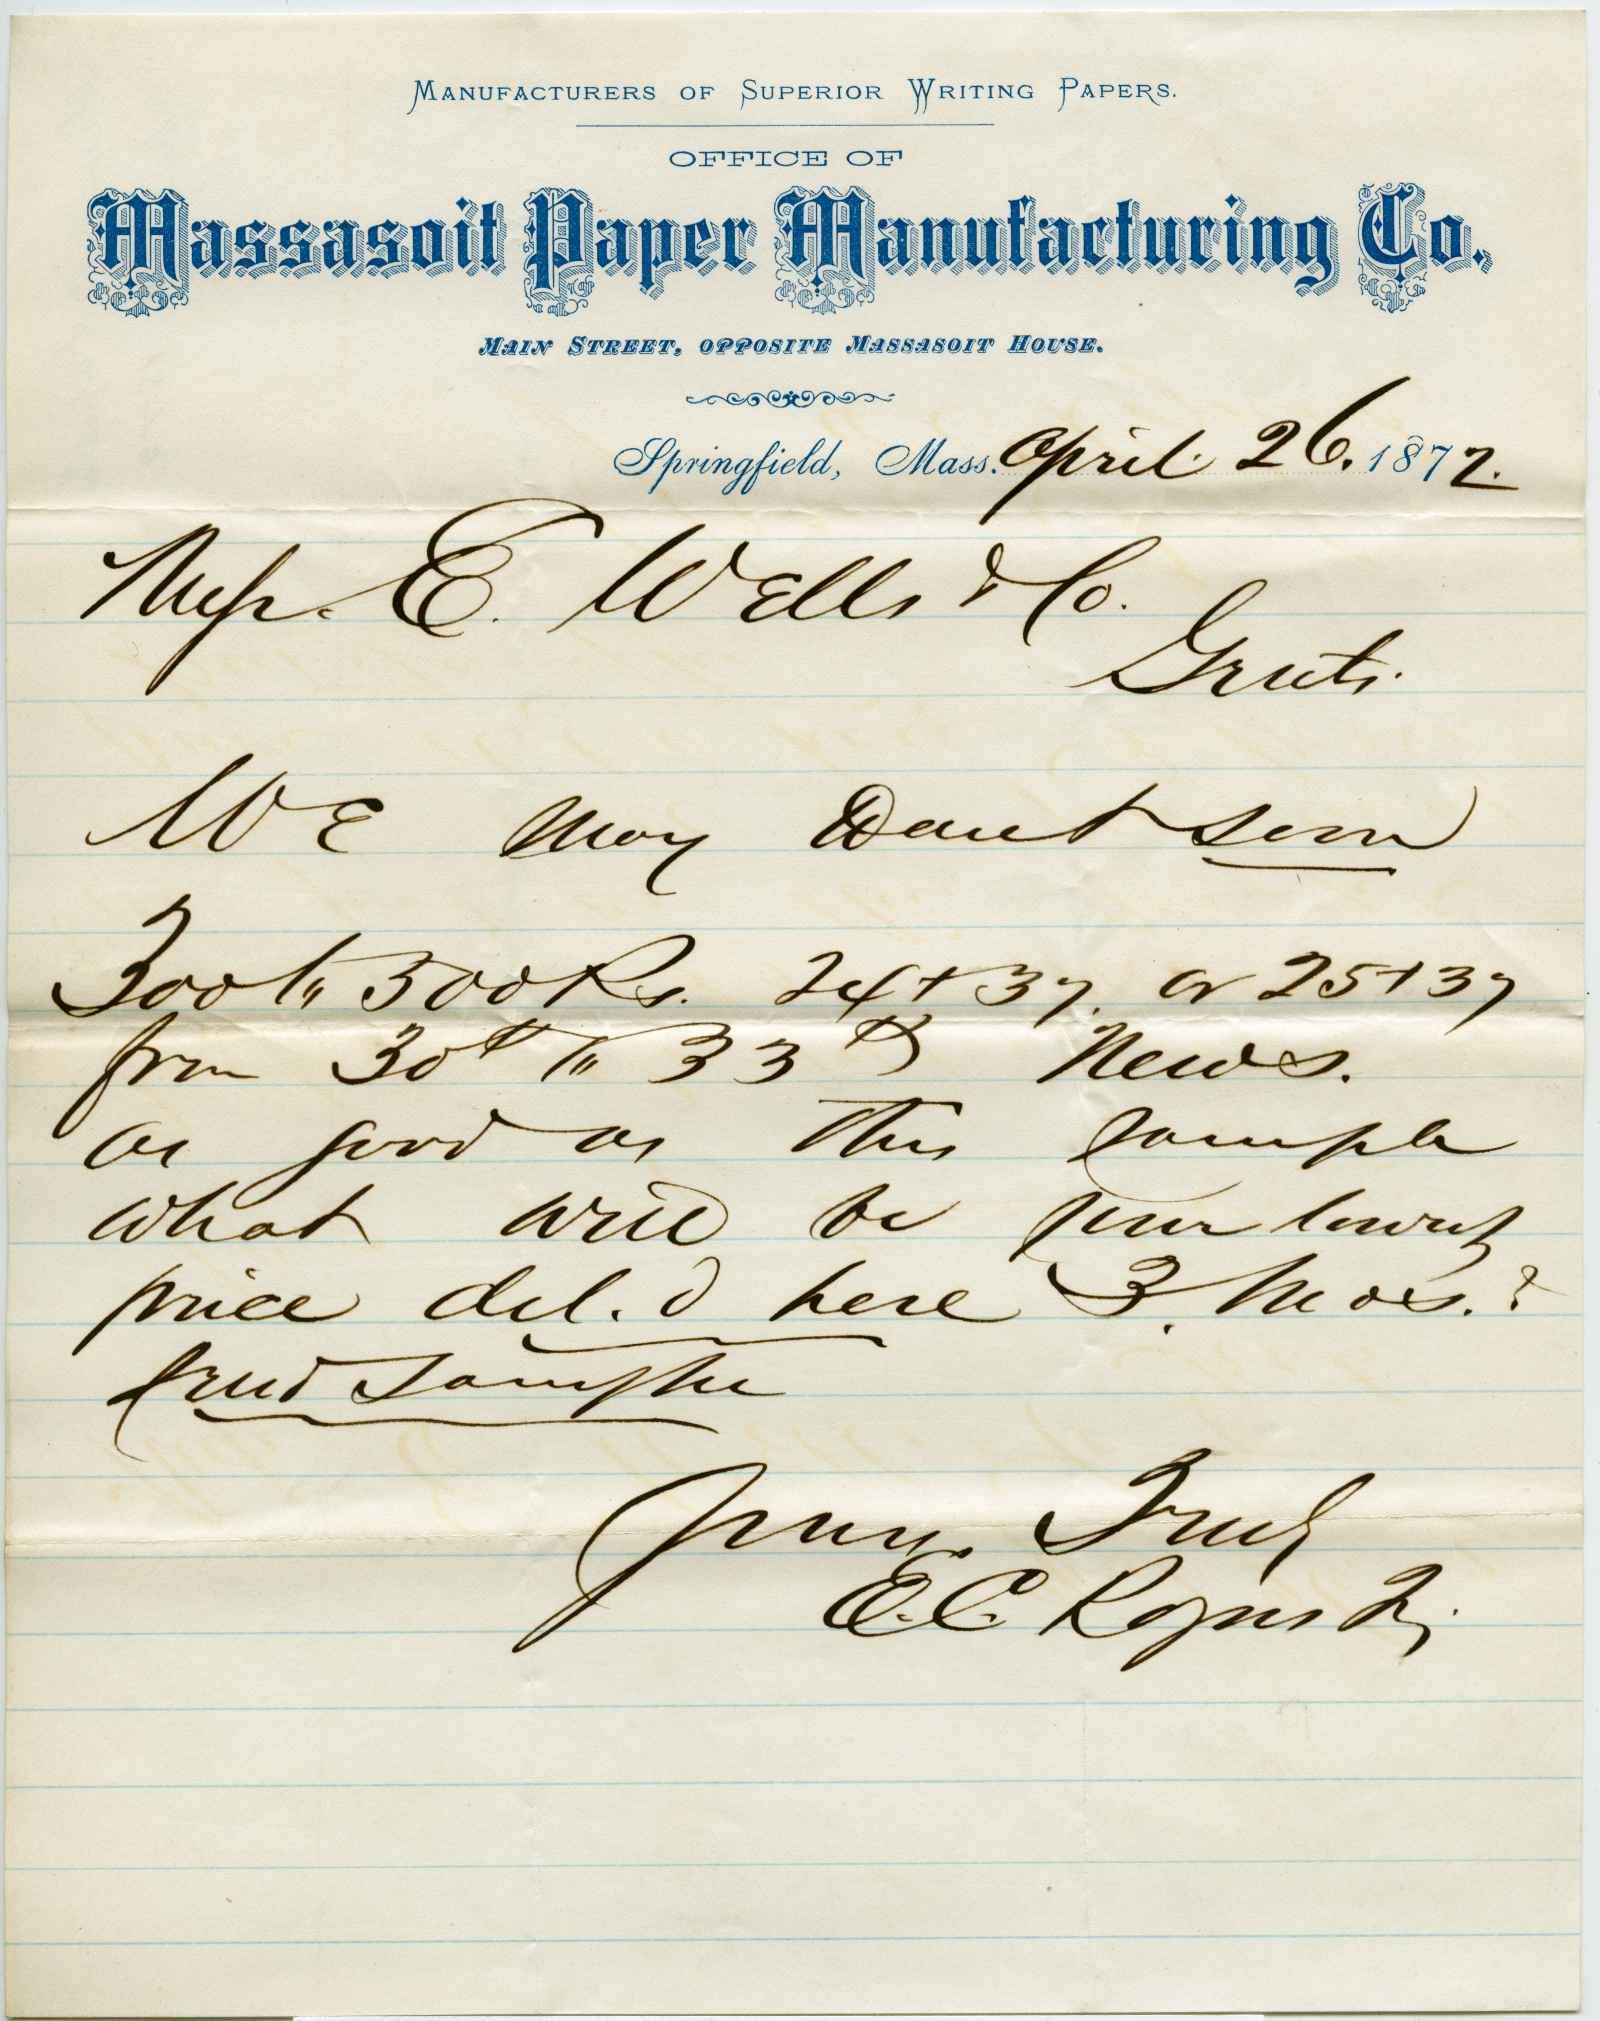 MANUFACTURERS OF SUPERIOR WRITING PAPERS.
OFFICE OF
Massasoit Paper Manufacturing Co.
MAIN STREET, OPPOSITE MASSASOIT HOUSE.
Springfield, Mass. April 26. 1872.
Mess. E. Wells & Co.
Gents.
We may want soon
300 to 500 Rs. 24+37. or 25+37
from 30 to 33 News.
as good as this sample
what will be your lowest
price del.d here 3. Mos.?
send sample
Yours Truly
E. C. Rogers Tr.